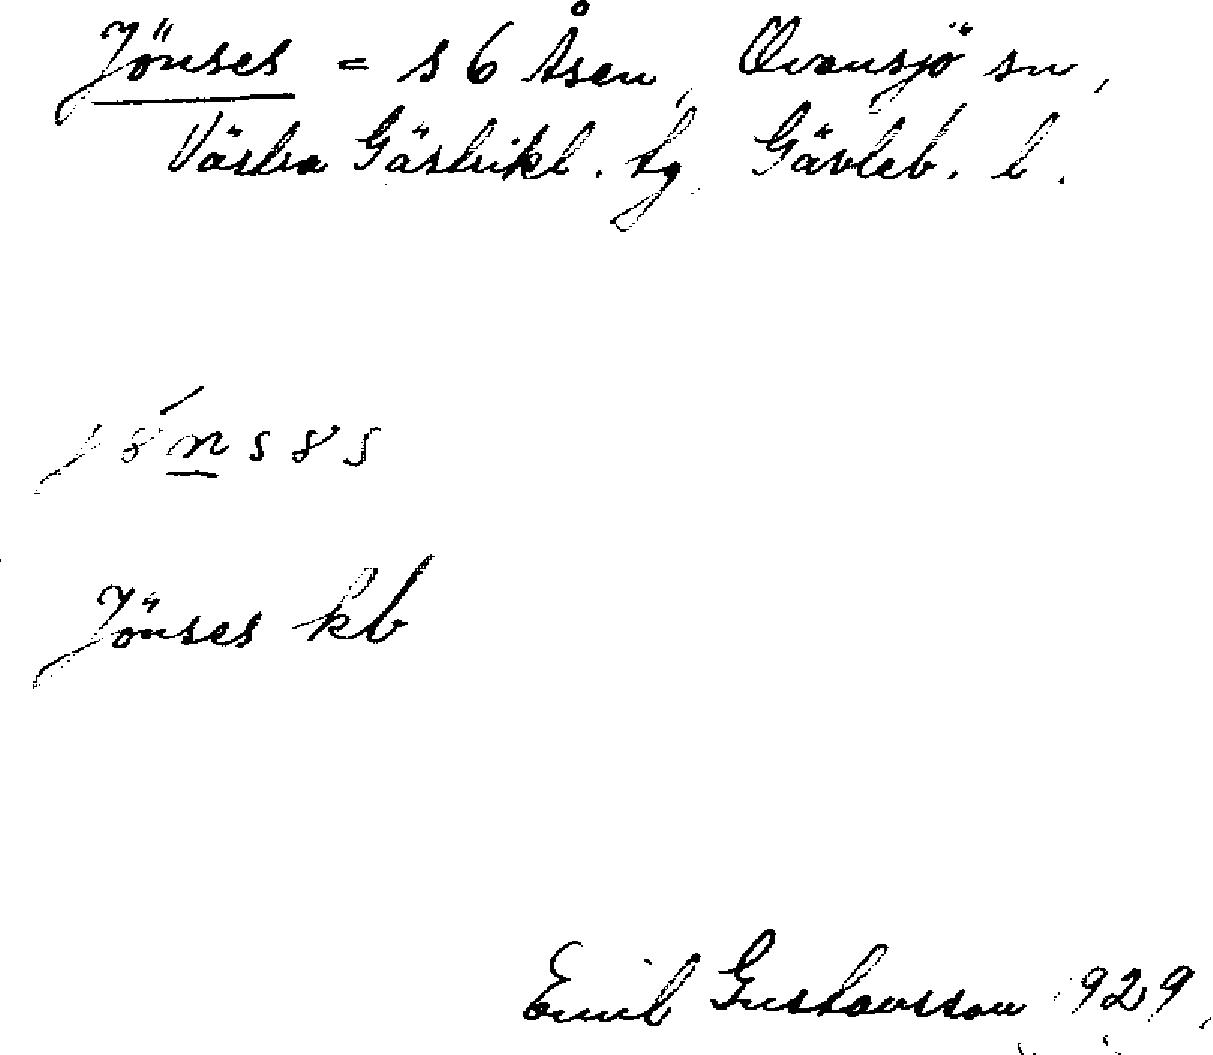 Jönses = s 6 Åsen, Ovansjö sn,
Västra Gästrikl. tg Gävleb. l.
Jönses kb
Emil Gustavsson 1929.